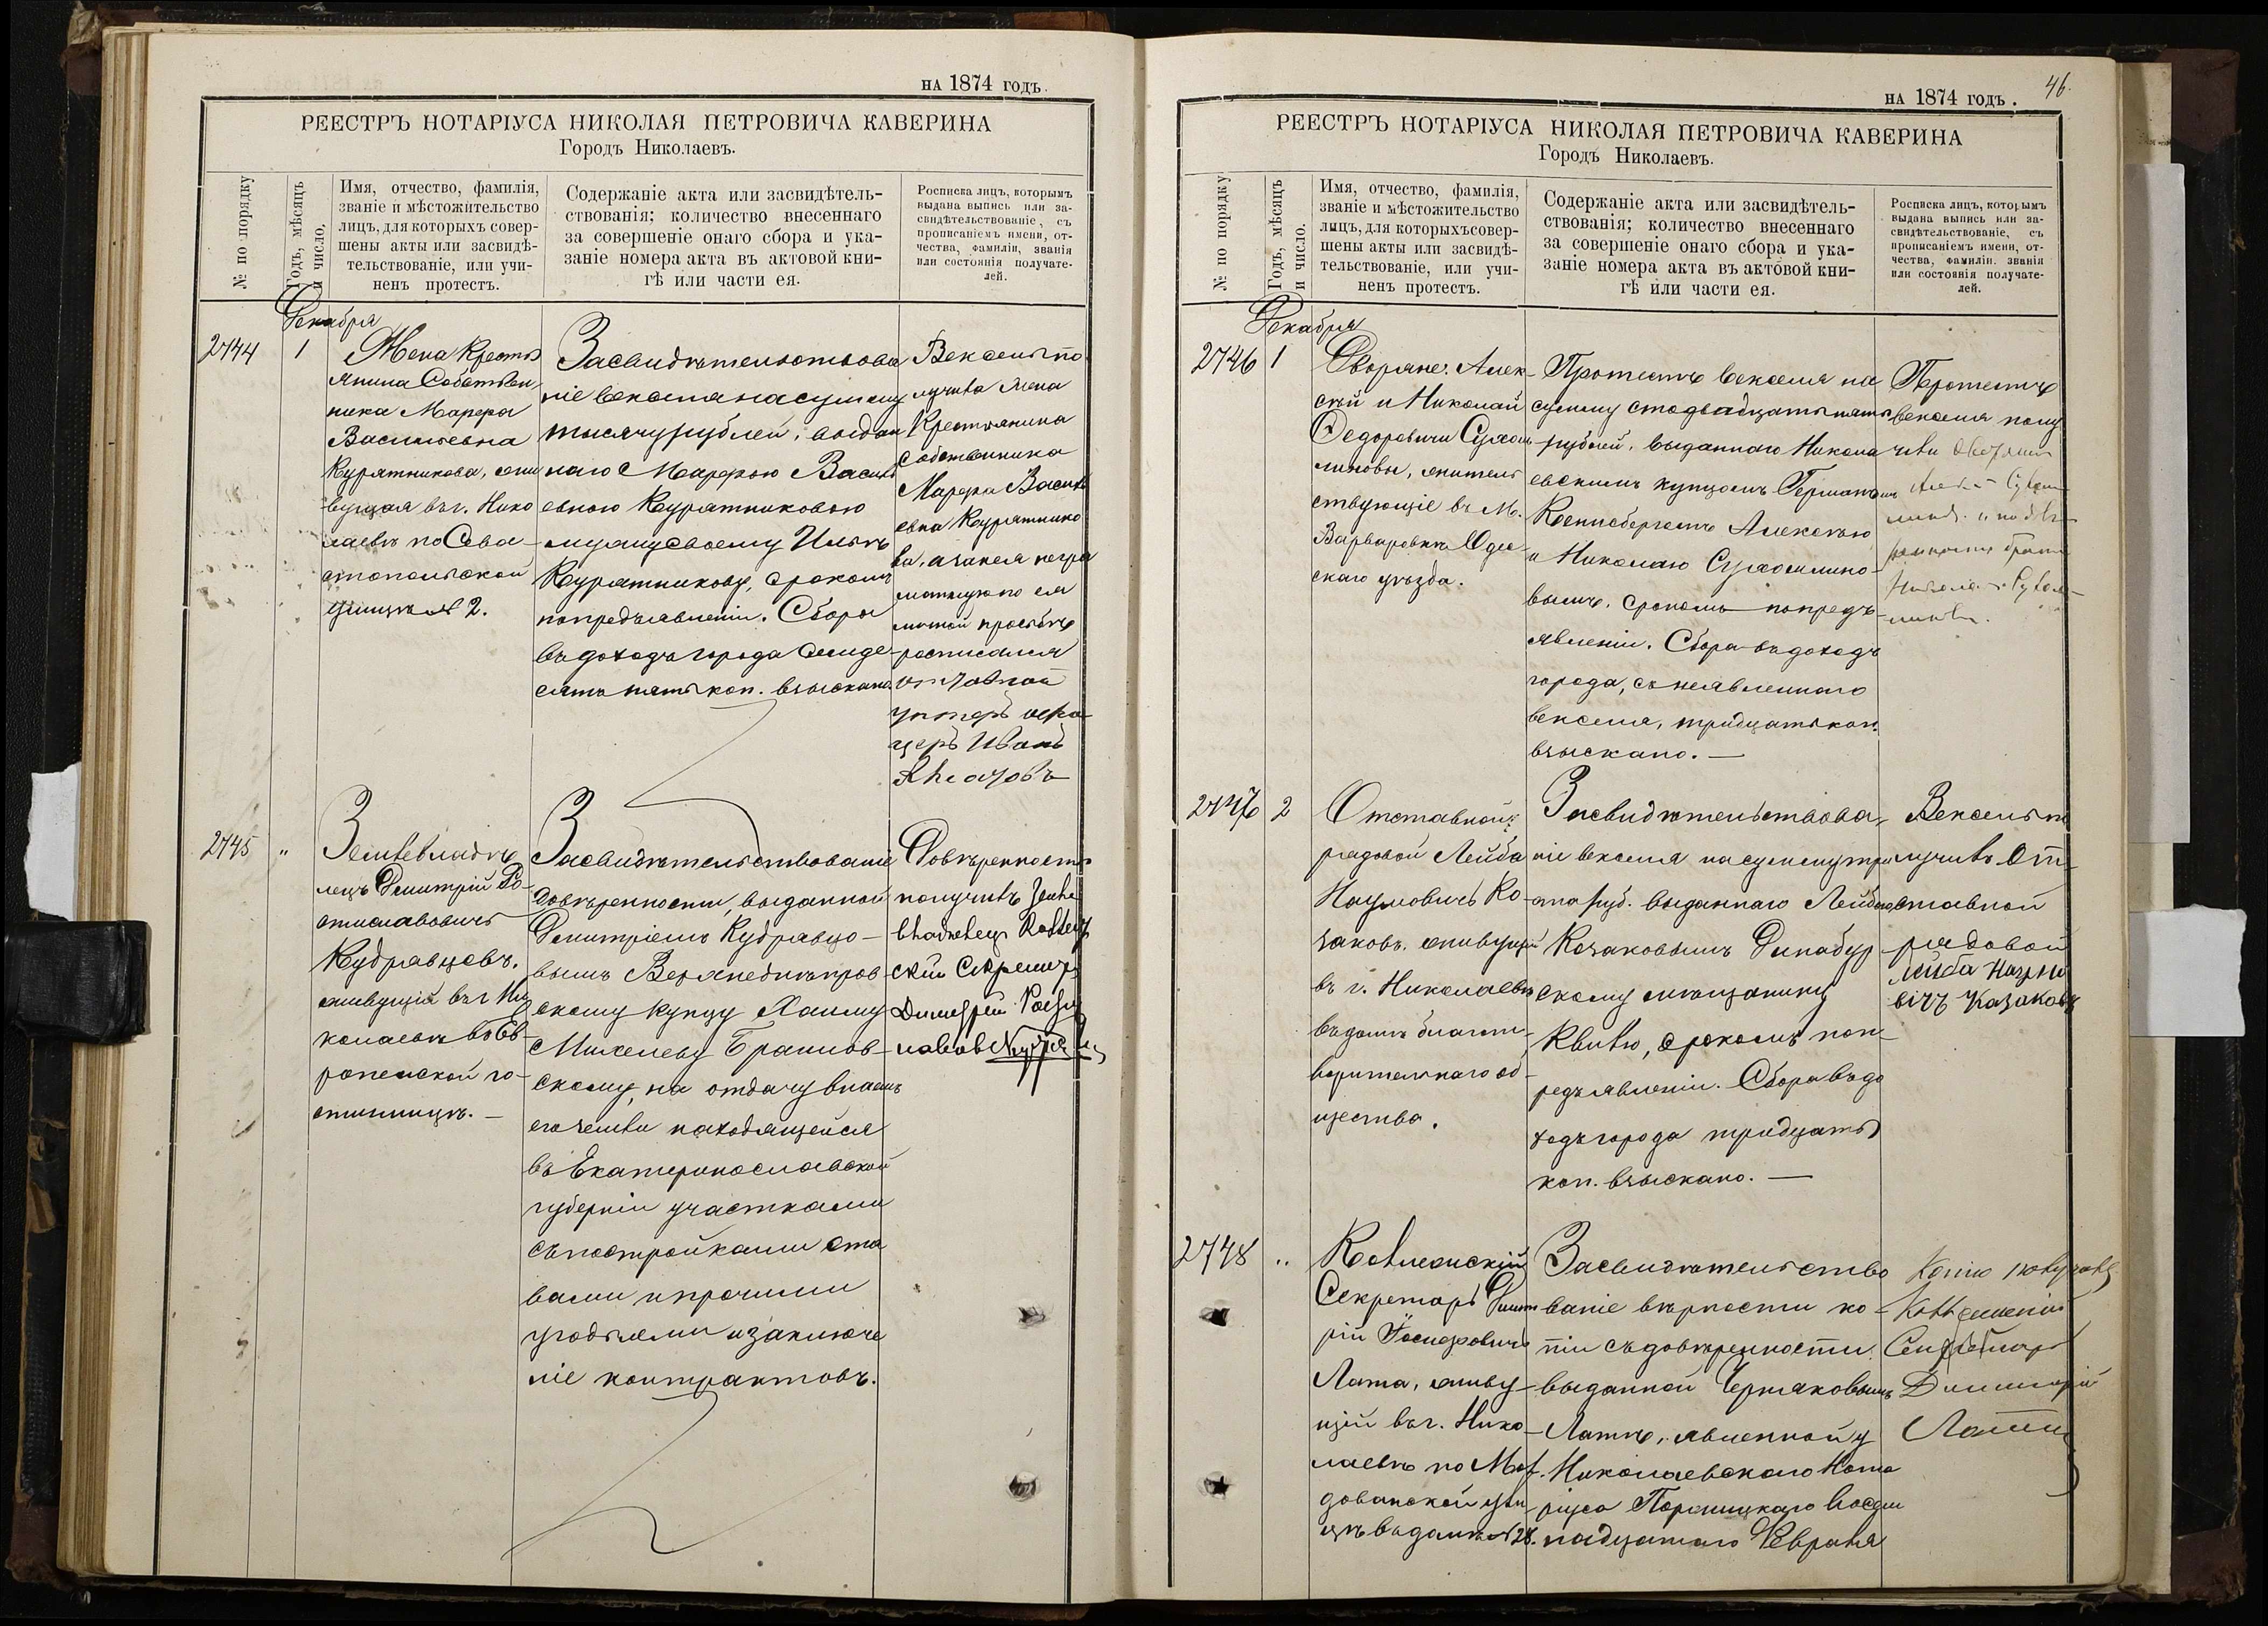 НА 1874 ГОДЪ.
РЕЕСТРЪ НОТАРІУСА НИКОЛАЯ ПЕТРОВИЧА КАВЕРИНА
Городъ Николаевъ.
№ по порядку
Годъ, мѣсяцъ
и число.
Имя, отчество, фамилія,
званіе и мѣстожительство
лицъ, для которыхъ совер-
шены акты или засвидѣ-
тельствованіе, или учи-
ненъ протестъ.
Содержаніе акта или засвидѣтель-
ствованія; количество внесеннаго
за совершеніе онаго сбора и ука-
заніе номера акта въ актовой кни-
гѣ или части ея.
Росписка лицъ, которымъ
выдана выпись или за-
свидѣтельствованіе, съ
прописаніемъ имени, от-
чества, фамиліи, званія
или состоянія получате-
лей.
Декабря
2744
1
Жена Кресть
янина Собствен
ника Марфа
Васильевна
Курятникова, жи
вущая въ г. Нико
лаевѣ по Сева-
стопольской
улицѣ № 2.
Засвидѣтельствова
ніе векселя на сумму
тысячу рублей, выдан
наго Марфою Василь
евною Курятниковою
мужу своему Ильѣ
Курятникову, срокомъ
по предъявленіи. Сбора
въ доходъ города семьде-
сятъ пять коп. взыскано.
Вексель по
лучила жена
Крестьянина
собственника
Марфа Василь
евна Курятнико
ва, а за нея негра
мотную по ея
личной просьбѣ
расписался
отставной
унтеръ офи
церъ Иванъ
2745
"
Землевладѣ
лецъ Дмитрій Ро-
стиславовичъ
Кудрявцовъ,
живущій въ г. Ни
колаевѣ въ Ев-
ропейской го-
стинницѣ. —
Засвидѣтельствованіе
довѣренности, выданной
Дмитріемъ Кудрявцо-
вымъ Верхнеднѣпров
скому купцу Хаиму
Михелеву Браилов-
скому, на отдачу въ наемъ
его земли находящейся
въ Екатеринославской
губерніи участками
съ постройками ста
вами и прочими
угодьями и заключе
ніе контрактовъ.
Довѣренность
получилъ Земле
владѣлецъ Коллеж
скій Секретарь
Дмитрій Рости
славовъ Кудрявцовъ
46.
НА 1874 ГОДЪ.
РЕЕСТРЪ НОТАРІУСА НИКОЛАЯ ПЕТРОВИЧА КАВЕРИНА
Городъ Николаевъ.
№ по порядку
Годъ, мѣсяцъ
и число.
Имя, отчество, фамилія,
званіе и мѣстожительство
лицъ, для которыхъ совер-
шены акты или засвидѣ-
тельствованіе, или учи-
ненъ протестъ.
Содержаніе акта или засвидѣтель-
ствованія; количество внесеннаго
за совершеніе онаго сбора и ука-
заніе номера акта въ актовой кни-
гѣ или части ея.
Росписка лицъ, которымъ
выдана выпись или за-
свидѣтельствованіе, съ
прописаніемъ имени, от-
чества, фамиліи, званія
или состоянія получате-
лей.
Декабря
2746
1
Дворяне: Алек-
сѣй и Николай
Федоровичи Сухом
линовы, житель
ствующіе въ М.
Варваровкѣ Одес-
скаго уѣзда.
Протестъ векселя на
сумму сто двадцать пять
рублей, выданнаго Никола
евскимъ купцомъ Германомъ
Кенисбергомъ Алексѣю
и Николаю Сухомлино-
вымъ, срокомъ по предъ-
явленіи. Сбора въ доходъ
города, съ неявленнаго
векселя, тридцать коп.
взыскано. —
Протестъ
векселя полу
чилъ дворянинъ
2747
2
Отставной
рядовой Лейба
Наумовичъ Ко-
заковъ, живущій
въ г. Николаевѣ
въ домѣ благотво-
рительнаго об-
щества.
Засвидѣтельствова-
ніе векселя на сумму три
ста руб. выданнаго Лейбою
Козаковымъ Динабур
скому мѣщанину
Квитко, срокомъ по п-
редъявленіи. Сбора въ до
ходъ города тридцать
коп. взыскано. —
Вексель по
лучилъ От-
ставной
рядовой
Лейба Науми
вичъ Казаковъ
2748
"
Коллежскій
Секретарь Дмит
рій Іосифовичъ
Лата, живу-
щій въ г. Нико-
лаевѣ по Мол
дованской ули
цѣ въ домѣ № 28.
Засвидѣтельство
ваніе вѣрности ко-
піи съ довѣренности
выданной Черняковымъ
Латѣ, явленной у
Николаевскаго Нота
ріуса Порецкаго восем
надцатаго Февраля
Копію получилъ
Коллежскій
Секретарь
Дмитрій
Лата